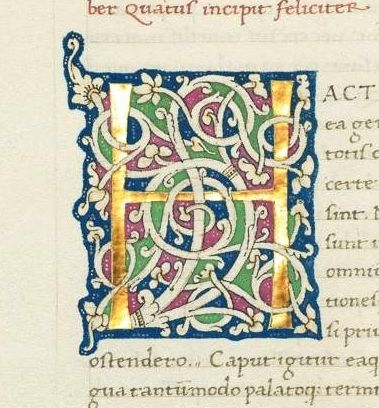 ber Quatus incipit feliciter
HACT
ea ge
totis c
certe
sint. I
sunt i
omnii
tiones
si priu
ostendero. Caput igitur eaq
gua tantūmodo palatoq; termi